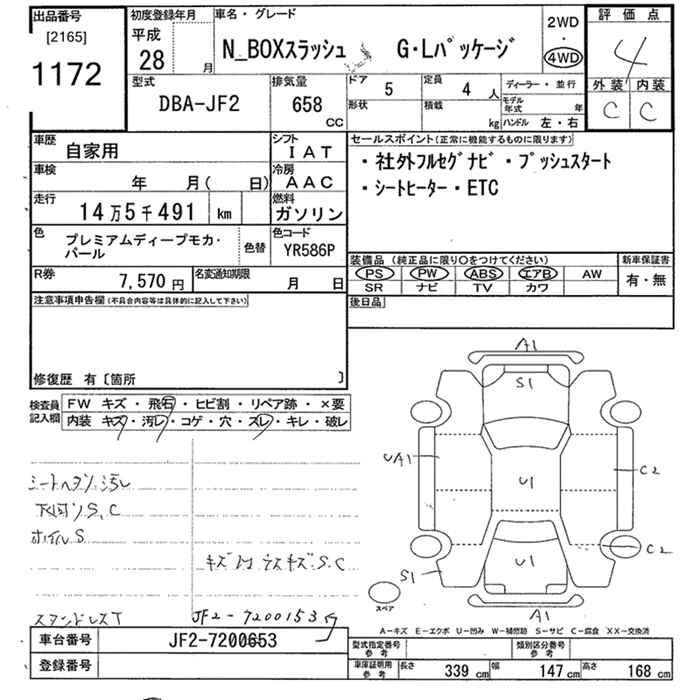 出品番号 初度登録年月 車名・グレード 評価点
[2165] 平成 2WD
1172 28 月 N_BOXスラッシュ G・Lパッケージ 4WD 4
型式 排気量 ドア 5 定員 4 人 ディーラー・並行 外装 内装
DBA-JF2 658 CC 形状 積載 kg モデル年式 年 C C
ハンドル 左・右
車歴 自家用 シフト IAT セールスポイント(正常に機能するものに限ります)
車検 年 月( 日) 冷房 AAC ・社外フルセグナビ・プッシュスタート
走行 14万5千491 km 燃料 ガソリン ・シートヒーター・ETC
色 プレミアムディープモカ・パール 色替 色コード YR586P
装備品(純正品に限り○をつけてください) 新車保証書
R券 7,570円 名変通知期限 月 日 PS PW ABS エアB AW 有・無
SR ナビ TV カワ
注意事項申告欄(不具合内容等は具体的に記入して下さい) 後日品
修復歴 有〔箇所 〕
検査員記入欄 FW キズ・飛石・ヒビ割・リペア跡・×要
内装 キズ・汚レ・コゲ・穴・ズレ・キレ・破レ
A1
S1
UA1 U1 C2
シートヘタリ汚レ
S,C
ホイルS
U1 C2
S1
スペア
A1
スタンドレスT JF2-7200153
A-キズ E-エクボ U-凹み W-補修跡 S-サビ C-腐食 XX-交換済
車台番号 JF2-7200653 型式指定番号 参考 類別区分番号 参考
登録番号 車庫証明用 参考 長さ 339 cm 幅 147 cm 高さ 168 cm